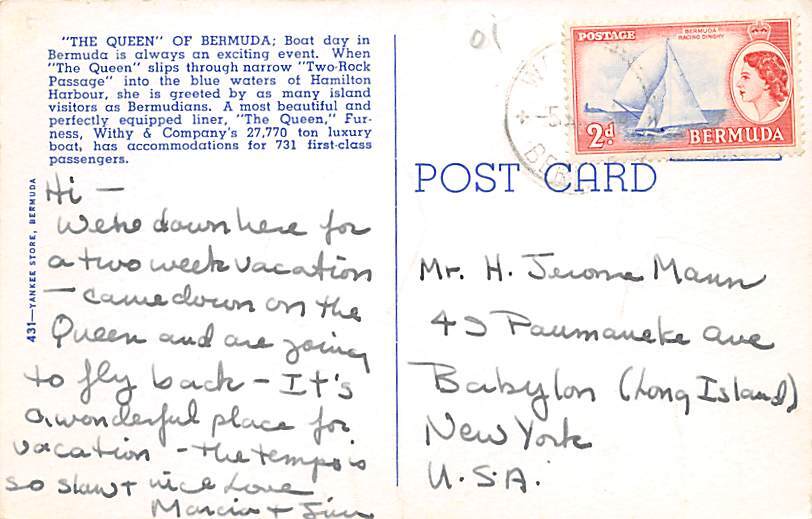 "THE QUEEN" OF BERMUDA; Boat day in
Bermuda is always an exciting event. When
"The Queen" slips through narrow "Two-Rock
Passage" into the blue waters of Hamilton
Harbour, she is greeted by as many island
visitors as Bermudians. A most beautiful and
perfectly equipped liner, "The Queen," Fur-
ness, Withy & Company's 27,770 ton luxury
boat, has accommodations for 731 first-class
passengers.
431—YANKEE STORE, BERMUDA
Hi —
We're down here for
a two week vacation
— came down on the
Queen and are going
to fly back — It's
a wonderful place for
vacation - the tempo is
so slow + nice Love
Marcia + Jim
01
POSTAGE
BERMUDA
RACING DINGHY
2d
BERMUDA
POST CARD
Mr. H. Jerome Mann
Paumaneke Ave
Babylon (Long Island)
New York
U.S.A.